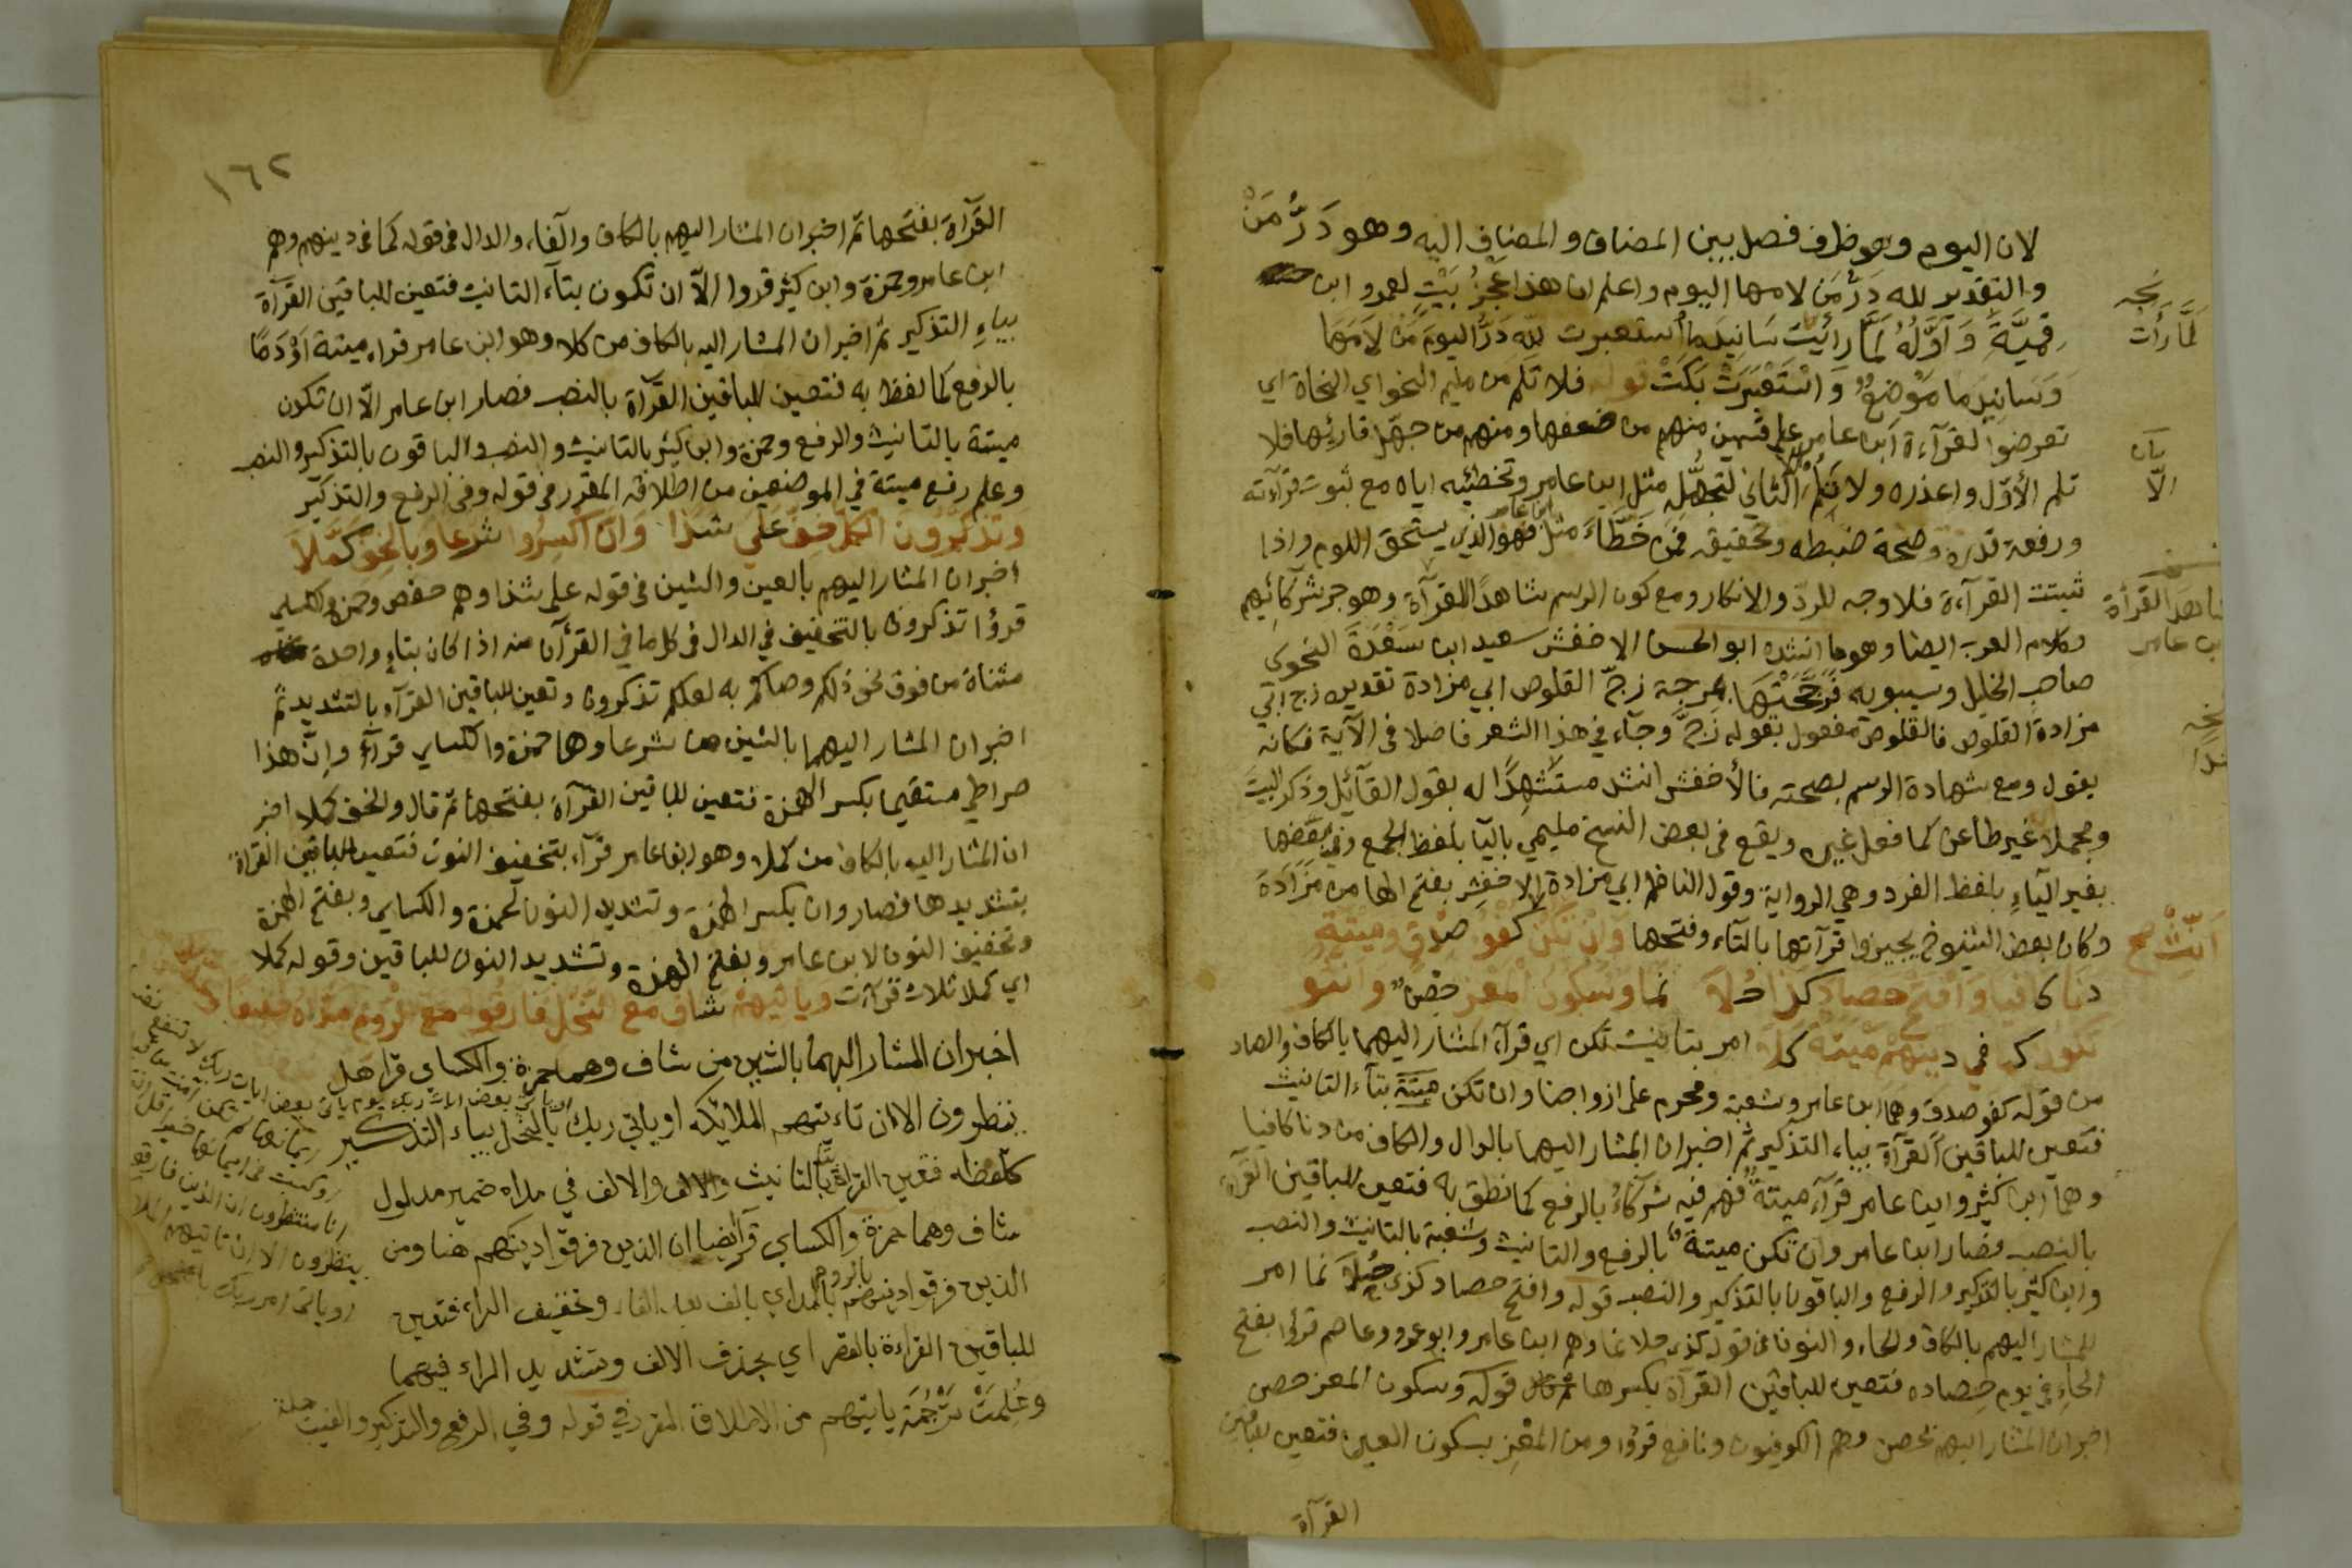 لان اليوم وهو ظرف فصل بين المضاف والمضاف اليه وهو دَرُّ مَنْ
والتقدير لله دَرُّ مَن لامها اليوم واعلم ان هذا عَجُزُ بَيْتٍ لعمرو ابن
قميَّة وَاَوَّلُهُ لَمَّا رَأيت سَاتِيدَما اُستعبرت لِلّهِ دَرُّ اليومَ مَنْ لاَمَهَا
وَسَاتِيدَما مَوْضعٌ وَاسْتَعْبَرَتْ بَكَتْ قوله فلا تلم من مليم النحو اي النحاة اي
تعرضوا لقرآءة ابن عامر على قسمين منهم من ضعفها ومنهم من جهّل قارئها فلا
تلم الأوّل واعذره ولا تَلُمْ الثاني لتجهله مثل ابن عامر وتخطئيه اياه مع ثبوت قرآءته
ورفعة قدره وصحة ضبطه وتحقيقه فمن خَطَّاءَ مثل ابن عامر فهو الذي يستحق اللوم واذا
ثبتت القرآءة فلا وجه للردّ والانكار ومع كون الرسم شاهدًا للقرآة وهو جر شركائِهم
وكلام العرب ايضا وهو ما انشده ابو الحسن الاخفش سعيد ابن سَعْدَةَ النحوي
صاحب الخليل وسيبويه فَزَجَّجْتُهَا بِمِزَجّة زجّ القلوص ابي مزادة تقديره زج ابي
مزادة القلوص فالقلوص مفعول بقوله زَجَّ وجآء في هذا الشعر فاصلا في الآية فكانه
يقول ومع شهادة الرسم بصحته فالأخفش انشد مستشهدًا له بقول القآئل وذكر البيتَ
ومجملا غير طاعن كما فعل غيره ويقع في بعض النسخ مليمي باليآ بلفظ الجمع وفي بعضها
بغير اليآءِ بلفظ الفرد وهي الرواية وقول الناظم ابي مزادة الاخفش بفتح الها من مَزَادَةَ
وكان بعض الشيوخ يجيزوا قرآتها بالتآء وفتحها وَاِنْ تَكُنْ كفؤ صِدْقٍ وميْتةٍ
دَنَا كافيا وَافتَحْ حصادِ كَذَا حُلاَ نما وسُكونُ المَعْزِ حِصْنٌ وانثو
تكون كما في دينهم ميتة كلا امر بتانيث تكن اي قرآءَ المشار اليهما بالكاف والصاد
من قوله كفو صدق وهما ابن عامر وشعبة ومحرم على ازواجنا وان تكن ميتة بتآء التانيث
فتعين للباقين القرآة بيآء التذكير ثم اخبر ان المشار اليهما بالدال والكاف من دنا كافيا
وهما ابن كثير وابن عامر قرآء ميتةٌ فهم فيه شركآءُ بالرفع كما نطق به فتعين للباقين القرآة
بالنصب فصار ابن عامر وان تكن ميتةٌ بالرفع والتانيث وشعبة بالتانيث والنصب
وابن كثير بالتذكير والرفع والباقون بالتذكير والنصب قوله وافتح حصاد كذي حُلاَ نما امر
للمشار اليهم بالكاف والحاء والنون في قوله كذي حلا نما وهم ابن عامر وابو عمرو وعاصم قرؤا بفتح
الحآءِ في يوم حصاده فتعين للباقين القرآة بكسرها ثم قال قوله وسكون المعز حصن
اخبر ان المشار اليهم بحصن وهم الكوفيون ونافع قرؤا ومن المعْز بسكون العين فتعين للباقين
القرآة
نجه
لَمَّا رأت
شاهد القرأة
ابن عامر
اَنِّثْ صح
١٦٢
القرآة بفتحها ثم اخبر ان المشار اليهم بالكاف والفاء والدال في قوله كما في دينهم وهم
ابن عامر وحمزة وابن كثير قروا الآّ ان تكون بتآء التانيث فتعين للباقين القرآة
بيآءِ التذكير ثم اخبر ان المشار اليه بالكاف من كلا وهو ابن عامر قراء ميتة اَوْ دَمًا
بالرفع كما لفظ به فتعين للباقين القرآة بالنصب فصار ابن عامر الاّ ان تكون
ميتة بالتانيث والرفع وحمزة وابن كثير بالتانيث والنصب والباقون بالتذكير والنصب
وعلم رفع ميتة في الموضعين من اطلاقه المقرر في قوله وفي الرفع والتذكير
وَتَذَكَّرُون الكلُّ خِفَّ عَلى شذًا وَانّ اكْسِرُوا شرعا وَبالخِفِّ كمّلاَ
اخبر ان المشار اليهم بالعين والشين في قوله على شذا وهم حفص وحمزة والكساي
قرؤا تذكرون بالتخفيف في الدال في كل ما في القرآن منه اذا كان بتاءٍ واحدة
مثناة من فوق نحو ذلكم وصاكم به لعلكم تذكرون وتعين للباقين القرآءه بالتشديد ثم
اخبر ان المشار اليهما بالشين من شرعا وهما حمزة والكساي قرآءَ وانّ هذا
صراطي مستقيما بكسر الهمزة فتعين للباقين القرآة بفتحها ثم قال والخف كملا اخبر
ان المشار اليه بالكاف من كملا وهو ابن عامر قرآء بتخفيف النون فتعين للباقين القرآة
بتشديدها فصار وان بكسر الهمزة وتشديد النون لحمزة والكساي وبفتح الهمزة
وتخفيف النون لابن عامر وبفتح الهمزة وتشديد النون للباقين وقوله كملا
اي كملا ثلاث قرآءت وياتيهمْ شاف مع النّحل فارقوا مع الرّوم مَدّاه خفيفا
اخبر ان المشار اليهما بالشين من شاف وهما حمزة والكساي قرا هل
ينظرون الا ان تاءتيهم الملايكه او ياتي ربك بالنحل بياء التذكير
كلفظه فتعين القراة بالتانيث والالف في مداه ضمير مدلول
شاف وهما حمزة والكساي قرا ايضا ان الذين فرقوا دينهم هنا ومن
الذين فرقوا دينهم بالروم بالمد اي بالف بعد الفاء وتخفيف الراء فتعين
للباقين القراءة بالقصر اي بحذف الالف وتشديد الراء فيهما
وعُلِمَتْ تَرْجُمَة ياتيهم من الاطلاق المقرر في قوله وفي الرفع والتذكير والغيب جملة